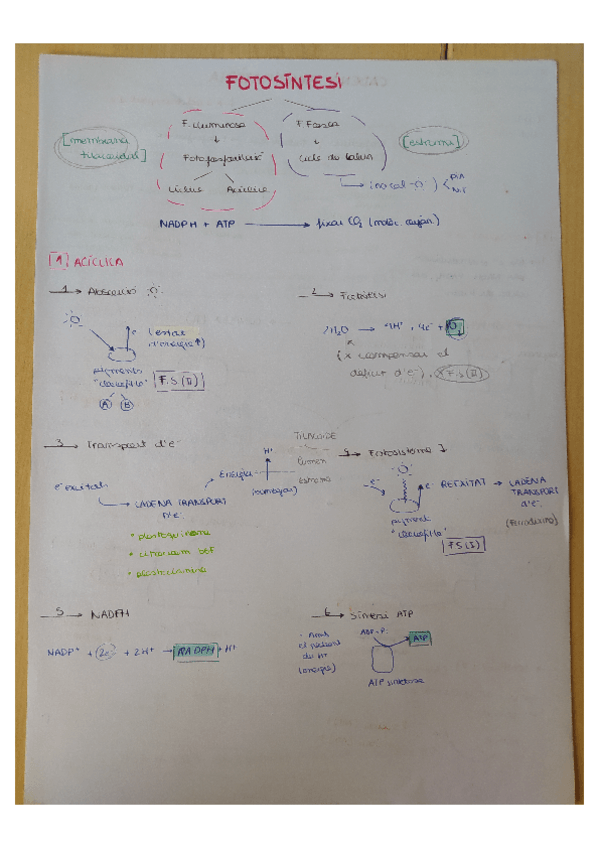 FOTOSÍNTESI
F. lluminosa
F. Fosca
[membrana tilacoidal]
[estroma]
Fotofosforilació
Cicle de Calvin
Cíclica Acíclica
NADPH + ATP → fixar CO2 (molèc.
[1] ACÍCLICA
1 → Absorció
2 → Fotòlisi
e-
(estat d'energia ↑)
pigments
"clorofil·la" F.S (II)
A B
H2O → 4H+, 4e- + O2
(x compensar el
dèficit d'e-), x F.S (II)
3 → Transport d'e-
e- excitats
→ CADENA TRANSPORT
d'e-
• plastoquinona
• citocrom b6F
• plastocianina
Energia
(bombejar)
H+
TILACOIDE
lumen
estroma
→ Fotosistema I
e-
e- REEXITAT → CADENA
TRANSPORT
d'e-
(Ferredoxina)
pigment
"clorofil·la"
F.S (I)
5 → NADPH
NADP+ + 2e- + 2H+ → NADPH + H+
6 → Síntesi ATP
• Amb
el
de H+
(energia)
ADP + P
ATP
ATP sintetasa